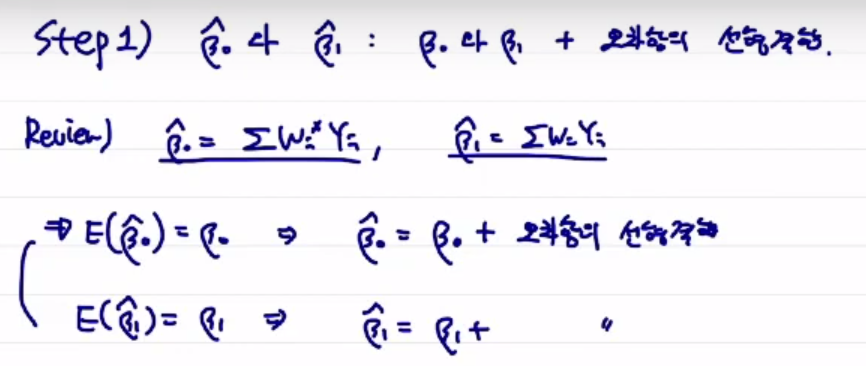 Step 1) β̂₀ 와 β̂₁ : β₀ 와 β₁ + 오차항의 선형결합.
Review) β̂₀ = ΣWᵢ*Yᵢ, β̂₁ = ΣWᵢYᵢ
⇒ E(β̂₀) = β₀ ⇒ β̂₀ = β₀ + 오차항의 선형결합
E(β̂₁) = β₁ ⇒ β̂₁ = β₁ + 〃